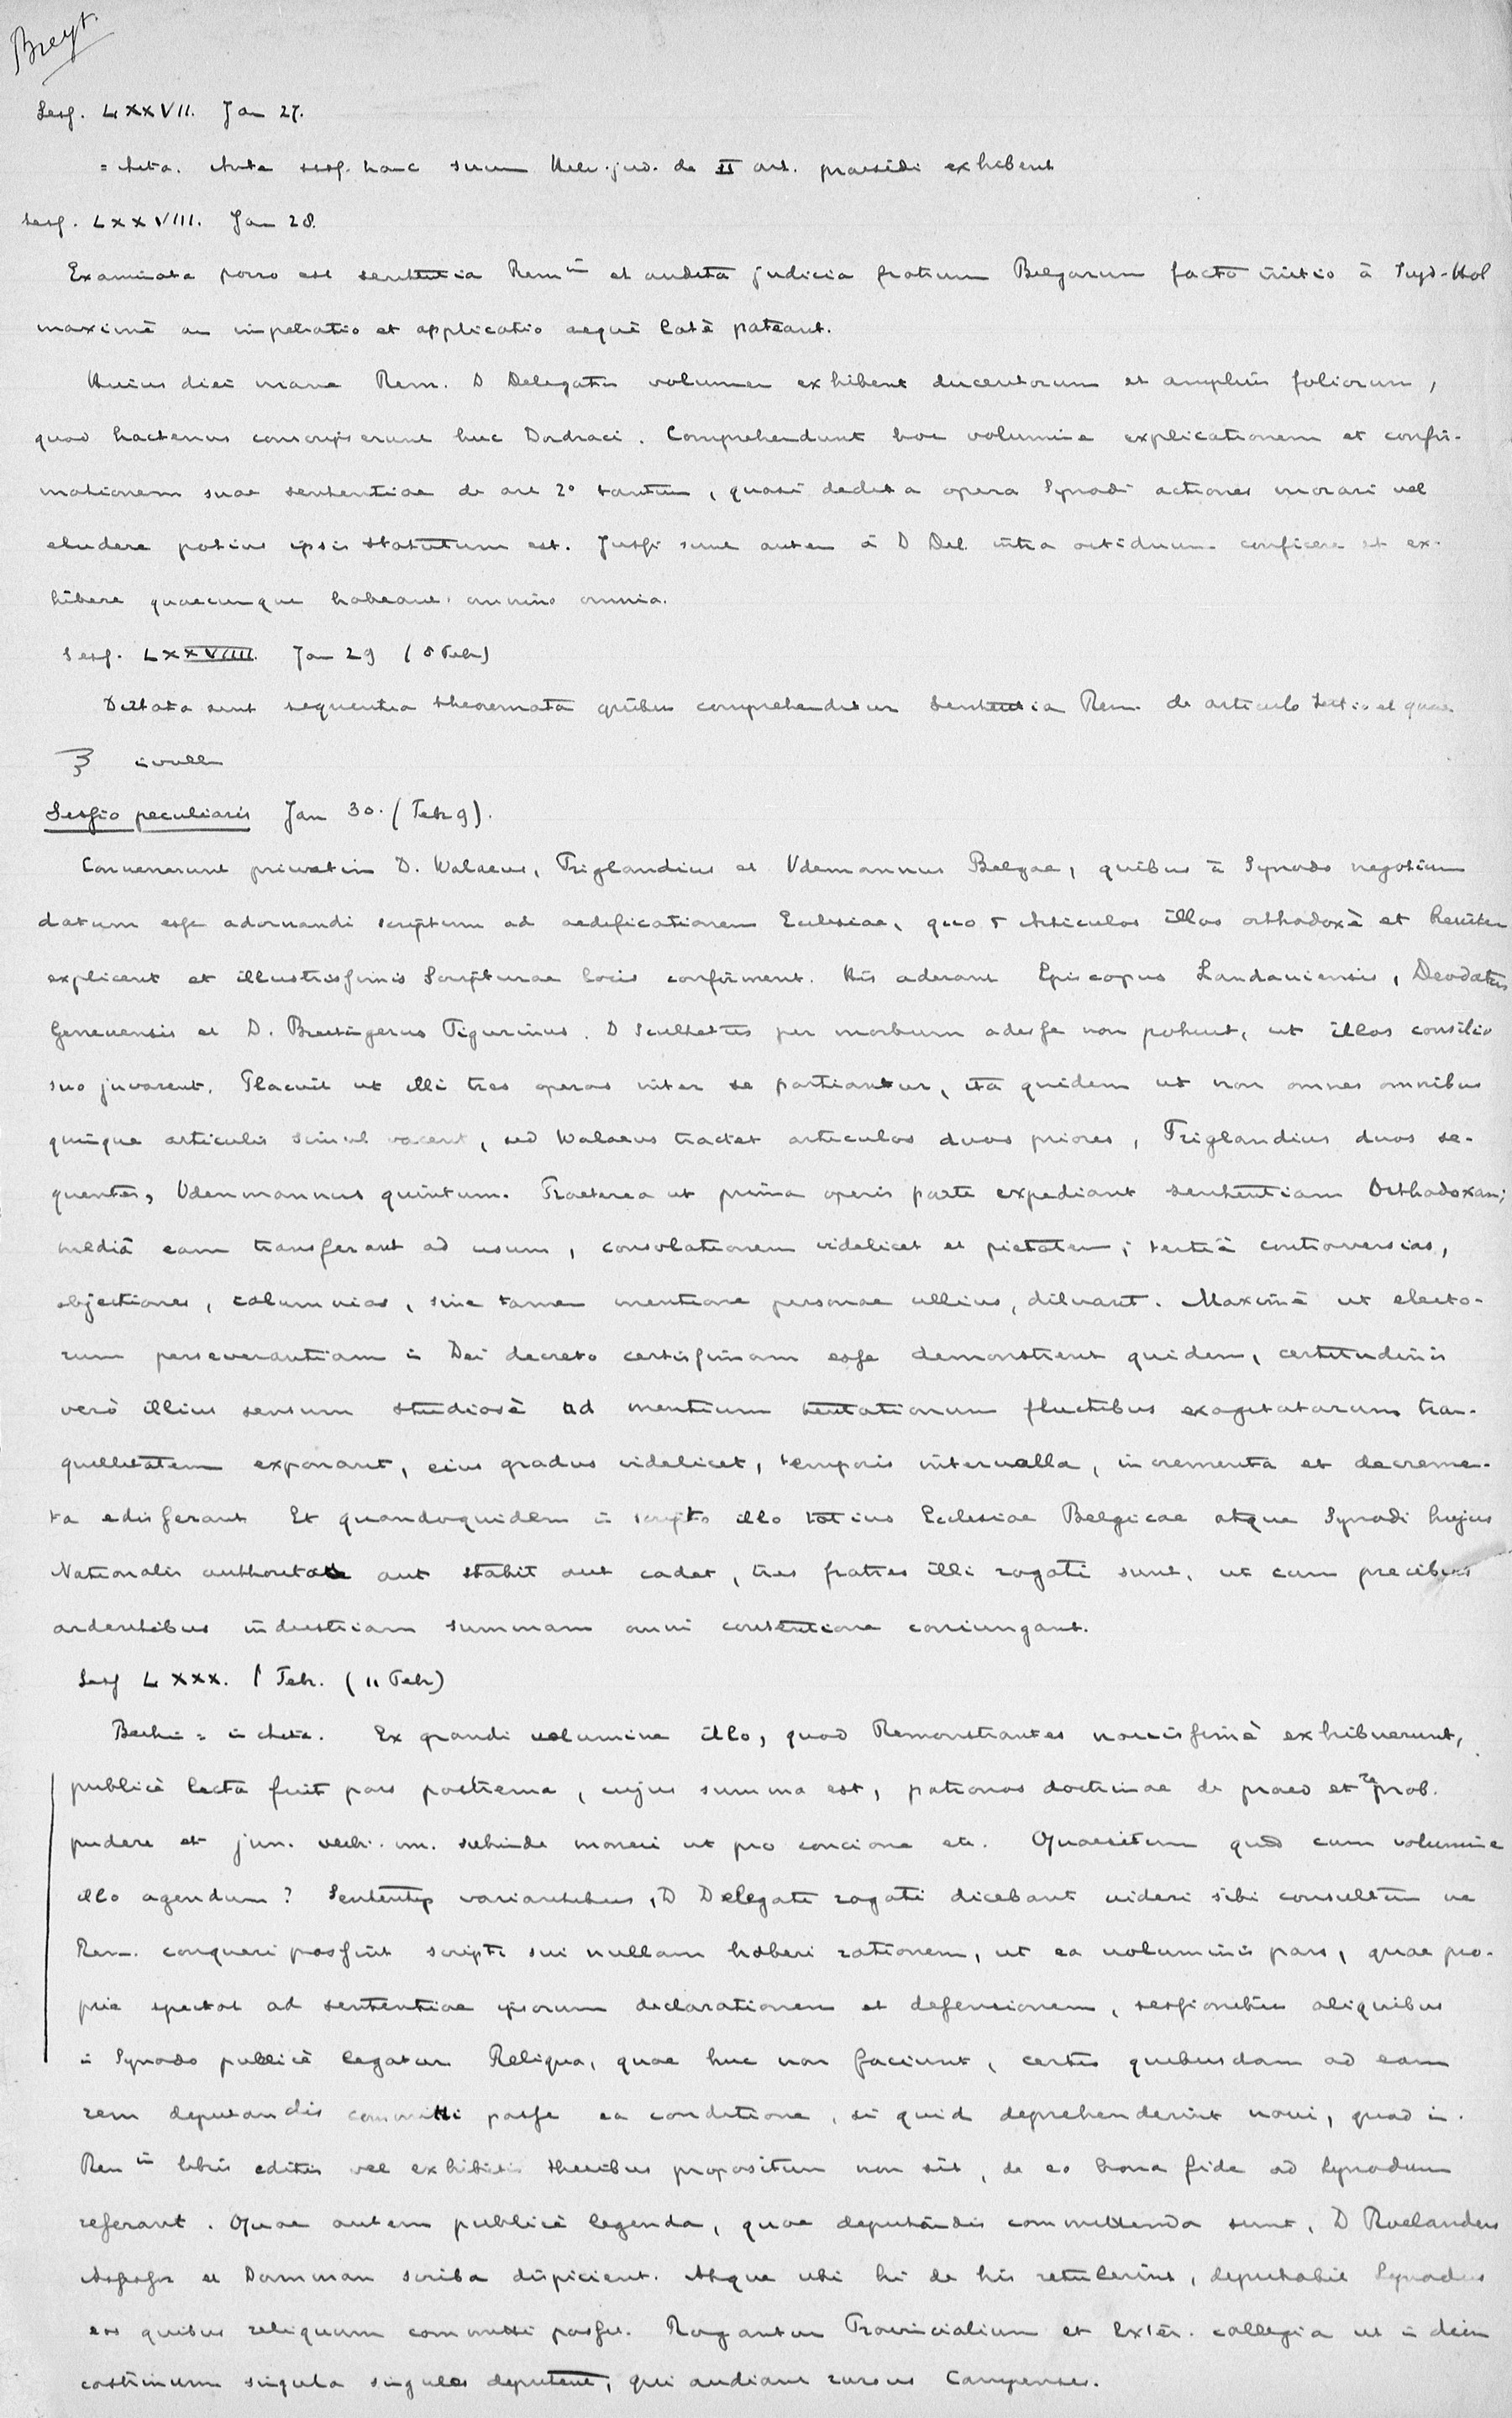 Breyt.
Sess. LXXVII. Jan 27.
= Acta. Ante sess. hanc suum Helv. jud. de II art. praesidi exhibent
Sess. LXXVIII. Jan 28.
Examinata porro est sententia Rem^m et audita judicia fratrum Belgarum facto initio à Suyd-Hol
maximè an impetratio et applicatio aequè latè pateant.
Huius diei mane Rem. D Delegatis volumen exhibent ducentorum et amplius foliorum,
quod hactenus conscripserunt huc Dordraci. Comprehendunt hoc volumine explicationem et confir-
mationem suae sententiae de art 2° tantum, quasi dedita opera Synodi actiones morari vel
eludere potius ipsis statutum est. Jussi sunt autem à D Del. intra octiduum conficere et ex-
hibere quaecunque habeant omnino omnia.
Sess. LXXVIIII. Jan 29 (8 Feb)
Dictata sunt sequentia theoremata quibus comprehenditur sententia Rem. de articulo tertio et quar.
Sessio peculiaris Jan 30. (Feb 9).
Convenerunt privatim D. Walaeus, Triglandius et Udemannus Belgae, quibus à Synodo negotium
datum esse adornandi scriptum ad aedificationem Ecclesiae, quo 5 Articulos illos orthodoxè et leniter
explicent et illustrissimis Scripturae locis confirment. His aderant Episcopus Landaviensis, Deodatus
Genevensis et D. Breitingerus Tigurinus. D Scultetus per morbum adesse non potuit, ut illos consilio
suo juvarent. Placuit ut illi tres operas inter se partiantur, ita quidem ut non omnes omnibus
quinque articulis simul vacent, sed Walaeus tractet articulos duos priores, Triglandius duos se-
quentes, Udenmannus quintum. Praeterea ut prima operis parte expediant sententiam Orthodoxam;
mediâ eam transferant ad usum, consolationem videlicet et pietatem; tertiâ controversias,
objectiones, calumnias, sine tamen mentione personae ullius, diluant. Maximè ut electo-
rum perseverantiam in Dei decreto certissimam esse demonstrent quidem, certitudinis
verò illius sensum studiosè ad mentium tentationum fluctibus exagitatarum tran-
quillitatem exponant, eius gradus videlicet, temporis intervalla, incrementa et decremen-
ta edisserant Et quandoquidem in scripto illo totius Ecclesiae Belgicae atque Synodi hujus
Nationalis authoritate aut stabit aut cadet, tres fratres illi rogati sunt, ut cum precibus
ardentibus industriam summam omni contentione coniungant.
Sess LXXX. 1 Feb. (11 Feb)
= in Acta. Ex grandi volumine illo, quod Remonstrantes novissimè exhibuerunt,
publicè lecta fuit pars postrema, cujus summa est, patronos doctrinae de praed et reprob.
pudere et jun. verb. m. subinde moneri ut pro concione etc. Quaesitum quid cum volumine
illo agendum? Sententiis variantibus, D Delegati rogati dicebant videri sibi consultum ne
Rem. conqueri possint scripti sui nullam haberi rationem, ut ea voluminis pars, quae pro-
prie spectat ad sententiae ipsorum declarationem et defensionem, sessionibus aliquibus
in Synodo publicè legatur Reliqua, quae huc non faciunt, certis quibusdam ad eam
rem deputandis committi posse ea conditione, si quid deprehenderint novi, quod in
Rem^m libris editis vel exhibitis thesibus propositum non sit, de eo bona fide ad Synodum
referant. Quae autem publicè legenda, quae deputandis committenda sunt, D Roelandus
Assessor et Damman scriba dispicient. Atque ubi hi de his retulerint, deputabit Synodus
eos quibus reliquum committi posset. Rogantur Provincialium et Exter. collegia ut in diem
crastinum singula singulos deputent, qui audiant rursus Campenses.